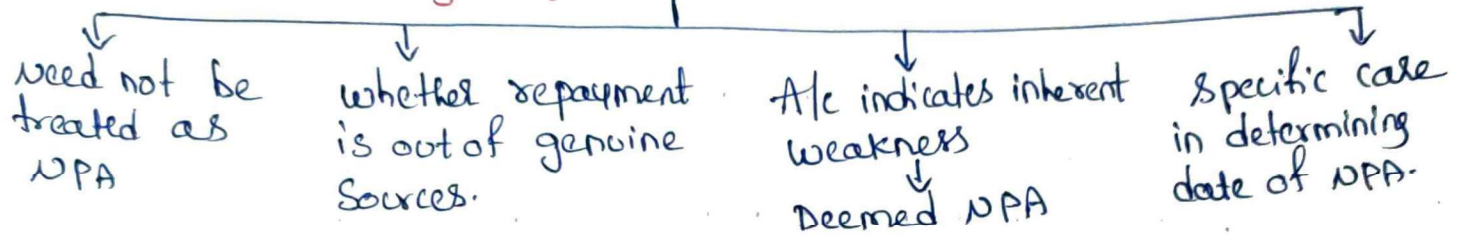 Need not be
treated as
NPA
whether repayment
is out of genuine
Sources.
A/c indicates inherent
weakness
Deemed NPA
Specific case
in determining
date of NPA.